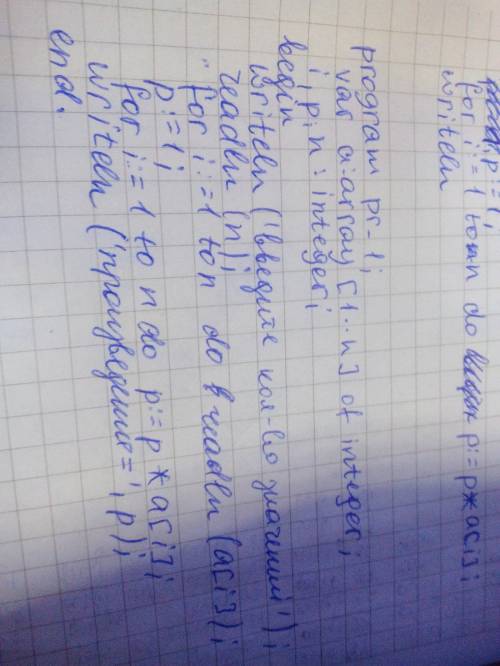 p:=1;
for i:=1 to n do p:=p*a[i];
writeln
program pr-1;
var a:array [1..n] of integer;
i, p, n: integer;
begin
writeln ('введите кол-во значений');
readln (n);
for i:=1 to n do readln (a[i]);
p:=1;
for i:=1 to n do p:=p*a[i];
writeln ('произведение=', p);
end.